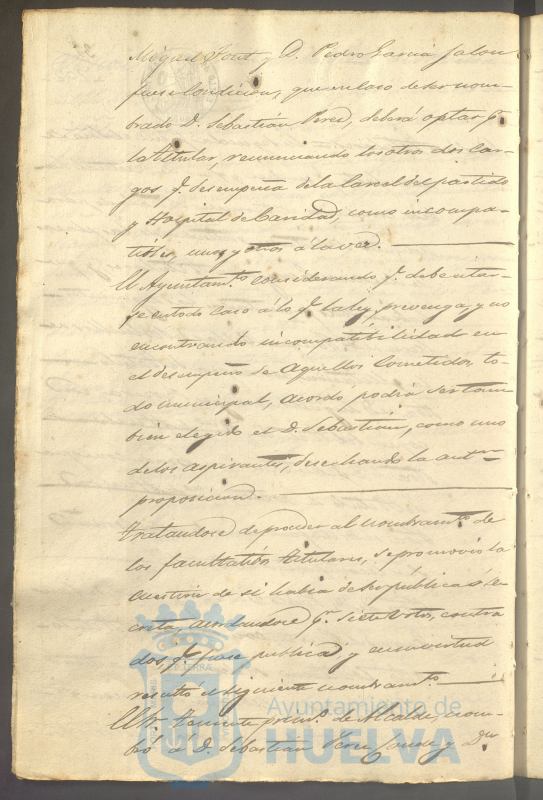 Miguel Font y D. Pedro Garcia Jalon
fuese condicion, que en caso de ser nom-
brado D. Sebastián Perez, deberá optar pr.
la titular, renunciando los otros dos car-
gos qe. desempeña de la Carcel del partido
y Hospital de Caridad, como incompa-
tibles, unos y otros á la vez.
El Ayuntamto. considerando qe. debe estar-
se en todo caso á lo qe. la ley prevenga, y no
encontrando incompatibilidad en
el desempeño de aquellos cometidos, to-
do municipal, acordó podia ser tam-
bien elegido el D. Sebastián, como uno
de los aspirantes, desechando la antor.
proposicion.
Tratandose de proceder al nombramto. de
los facultatibos titulares, se promovió la
cuestion de si habia de ser pública ó se-
creta, acordandose pr. siete votos, contra
dos, qe. fuese publica y en su virtud
resultó el siguiente nombramto.
El Sr. Teniente primo. de Alcalde, nom-
bró á D. Sebastian Perez Conde y Dn.
Ayuntamiento de
HUELVA